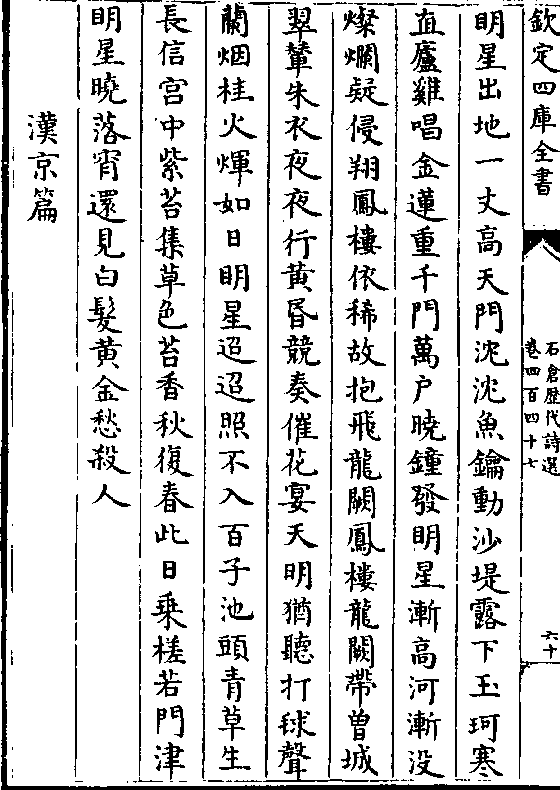 欽定四庫全書
石倉歴代詩選
卷四百四十七
六十
明星出地一丈高天門沈沈魚鑰動沙堤露下玉珂寒
直廬雞唱金蓮重千門萬户曉鐘發明星漸高河漸没
燦爛疑侵翔鳳樓依稀故抱飛龍闕鳳樓龍闕帶曾城
翠輦朱衣夜夜行黄昏競奏催花宴天明猶聽打毬聲
蘭烟桂火煇如日明星迢迢照不入百子池頭青草生
長信宫中紫苔集草色苔香秋復春此日乗槎若門津
明星曉落宵還見白髮黄金愁殺人
漢京篇